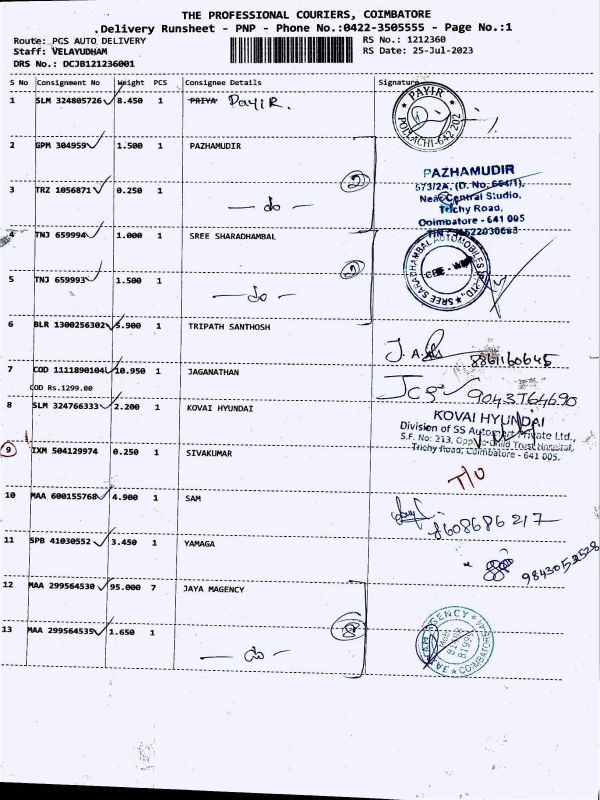 THE PROFESSIONAL COURIERS, COIMBATORE
.Delivery Runsheet - PNP - Phone No.:0422-3505555 - Page No.:1
Route: PCS AUTO DELIVERY RS No.: 1212360
Staff: VELAYUDHAM RS Date: 25-Jul-2023
DRS No.: DCJB121236001
S No Consignment No Weight PCS Consignee Details Signature
1 SLM 324805726 8.450 1 PRIYA PAYIR.
PAYIR
POLLACHI-642 202
2 GPM 304959 1.500 1 PAZHAMUDIR
PAZHAMUDIR
673/2A, (D. No. 664/1),
Near Central Studio,
Trichy Road,
Coimbatore - 641 005
3 TRZ 1056871 0.250 1 — do — 2
4 TNJ 659994 1.000 1 SREE SHARADHAMBAL
SREE SARADHAMBAL AUTOMOBILES
5 TNJ 659993 1.500 1 — do — 2
6 BLR 1300256302 5.900 1 TRIPATH SANTHOSH
8861160645
7 COD 1111890104 10.950 1 JAGANATHAN
COD Rs.1299.00
9043764690
8 SLM 324766333 2.200 1 KOVAI HYUNDAI
KOVAI HYUNDAI
Division of SS Automart Private Ltd.,
S.F. No: 213, Opp. Child Trust Hospital,
Trichy Road, Coimbatore - 641 005.
9 IXM 504129974 0.250 1 SIVAKUMAR
T/U
10 MAA 600155768 4.900 1 SAM
8608686217
11 SPB 41030552 3.450 1 YAMAGA
9843052528
12 MAA 299564530 95.000 7 JAYA MAGENCY
13 MAA 299564535 1.650 1 — do — 8
AGENCY
COIMBATORE